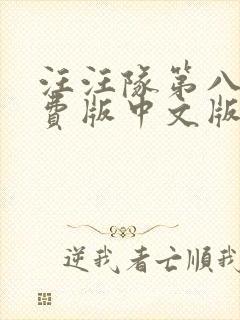 汪汪隊第八
費版中文版
逆我者亡順我